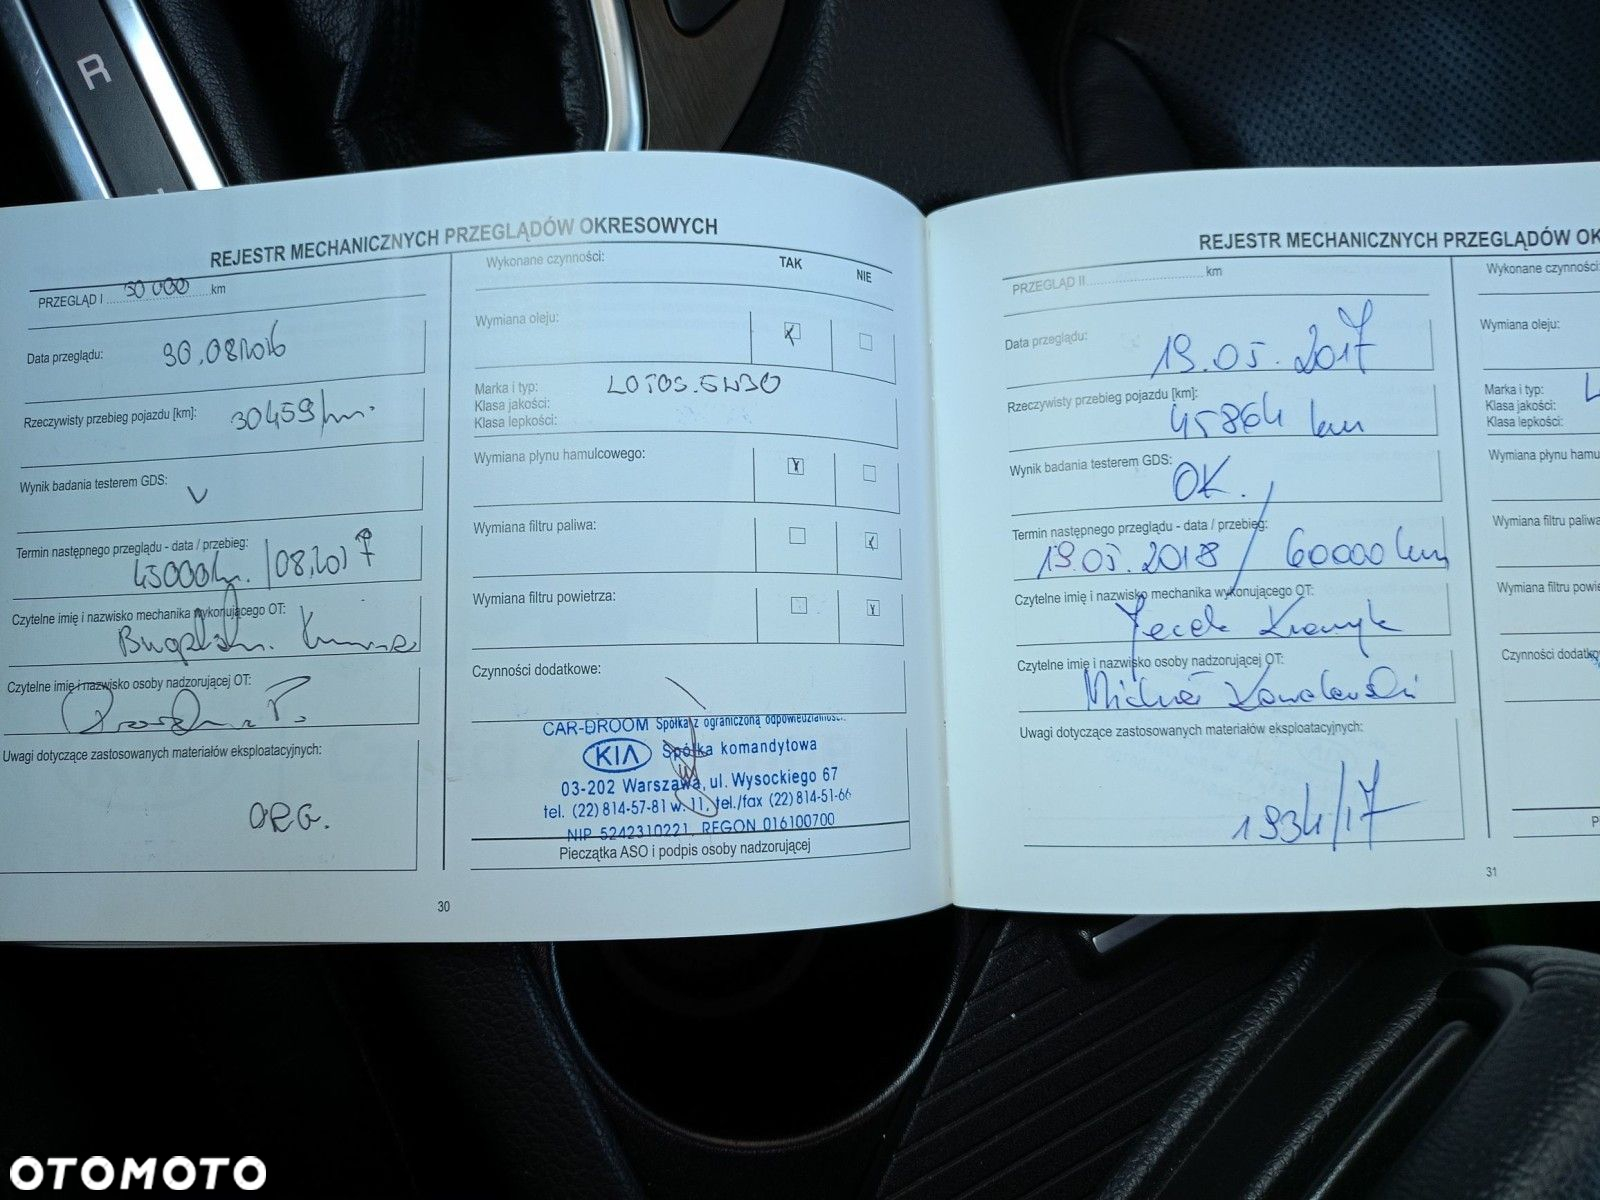 R
REJESTR MECHANICZNYCH PRZEGLĄDÓW OKRESOWYCH
PRZEGLĄD I 30 000 km
Data przeglądu: 30.08.2016
Rzeczywisty przebieg pojazdu [km]: 30459 km.
Wynik badania testerem GDS: V
Termin następnego przeglądu - data / przebieg:
45000km. / 08.2017
Czytelne imię i nazwisko mechanika wykonującego OT:
Czytelne imię i nazwisko osoby nadzorującej OT:
Uwagi dotyczące zastosowanych materiałów eksploatacyjnych:
ORG.
Wykonane czynności: TAK NIE
Wymiana oleju:
Marka i typ: LOTOS.5W30
Klasa jakości:
Klasa lepkości:
Wymiana płynu hamulcowego:
Wymiana filtru paliwa:
Wymiana filtru powietrza:
Czynności dodatkowe:
CAR-DROOM Spółka z ograniczoną odpowiedzialności.
KIA Spółka komandytowa
03-202 Warszawa, ul. Wysockiego 67
tel. (22) 814-57-81 w. 11, tel./fax (22) 814-51-66
NIP 5242310221, REGON 016100700
Pieczątka ASO i podpis osoby nadzorującej
30
REJESTR MECHANICZNYCH PRZEGLĄDÓW OK
PRZEGLĄD II km
Data przeglądu: 19.05.2017
Rzeczywisty przebieg pojazdu [km]:
45864 km
Wynik badania testerem GDS:
OK.
Termin następnego przeglądu - data / przebieg:
19.05.2018 / 60000 km
Czytelne imię i nazwisko mechanika wykonującego OT:
Jacek
Czytelne imię i nazwisko osoby nadzorującej OT:
Michał Kowalewski
Uwagi dotyczące zastosowanych materiałów eksploatacyjnych:
1934/17
Wykonane czynności:
Wymiana oleju:
Marka i typ: L
Klasa jakości:
Klasa lepkości:
Wymiana płynu hamu
Wymiana filtru paliwa
Wymiana filtru powie
Czynności dodatko
P
31
OTOMOTO